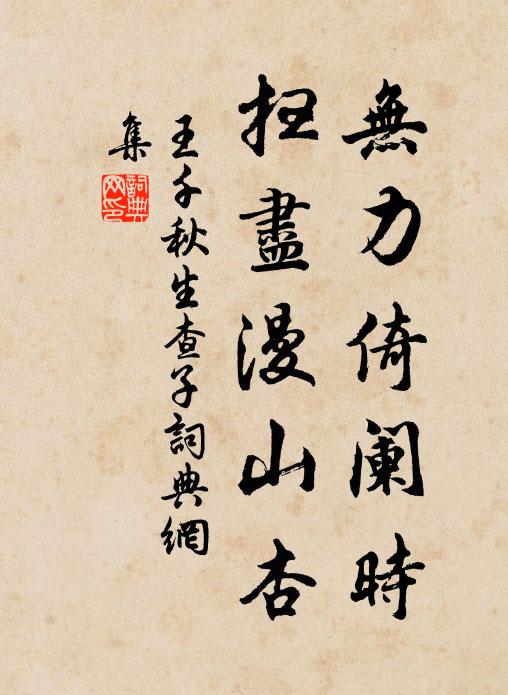 無力倚闌時
抂盡漫山杏
王千秋生查子詞典網
集
詞典
网印